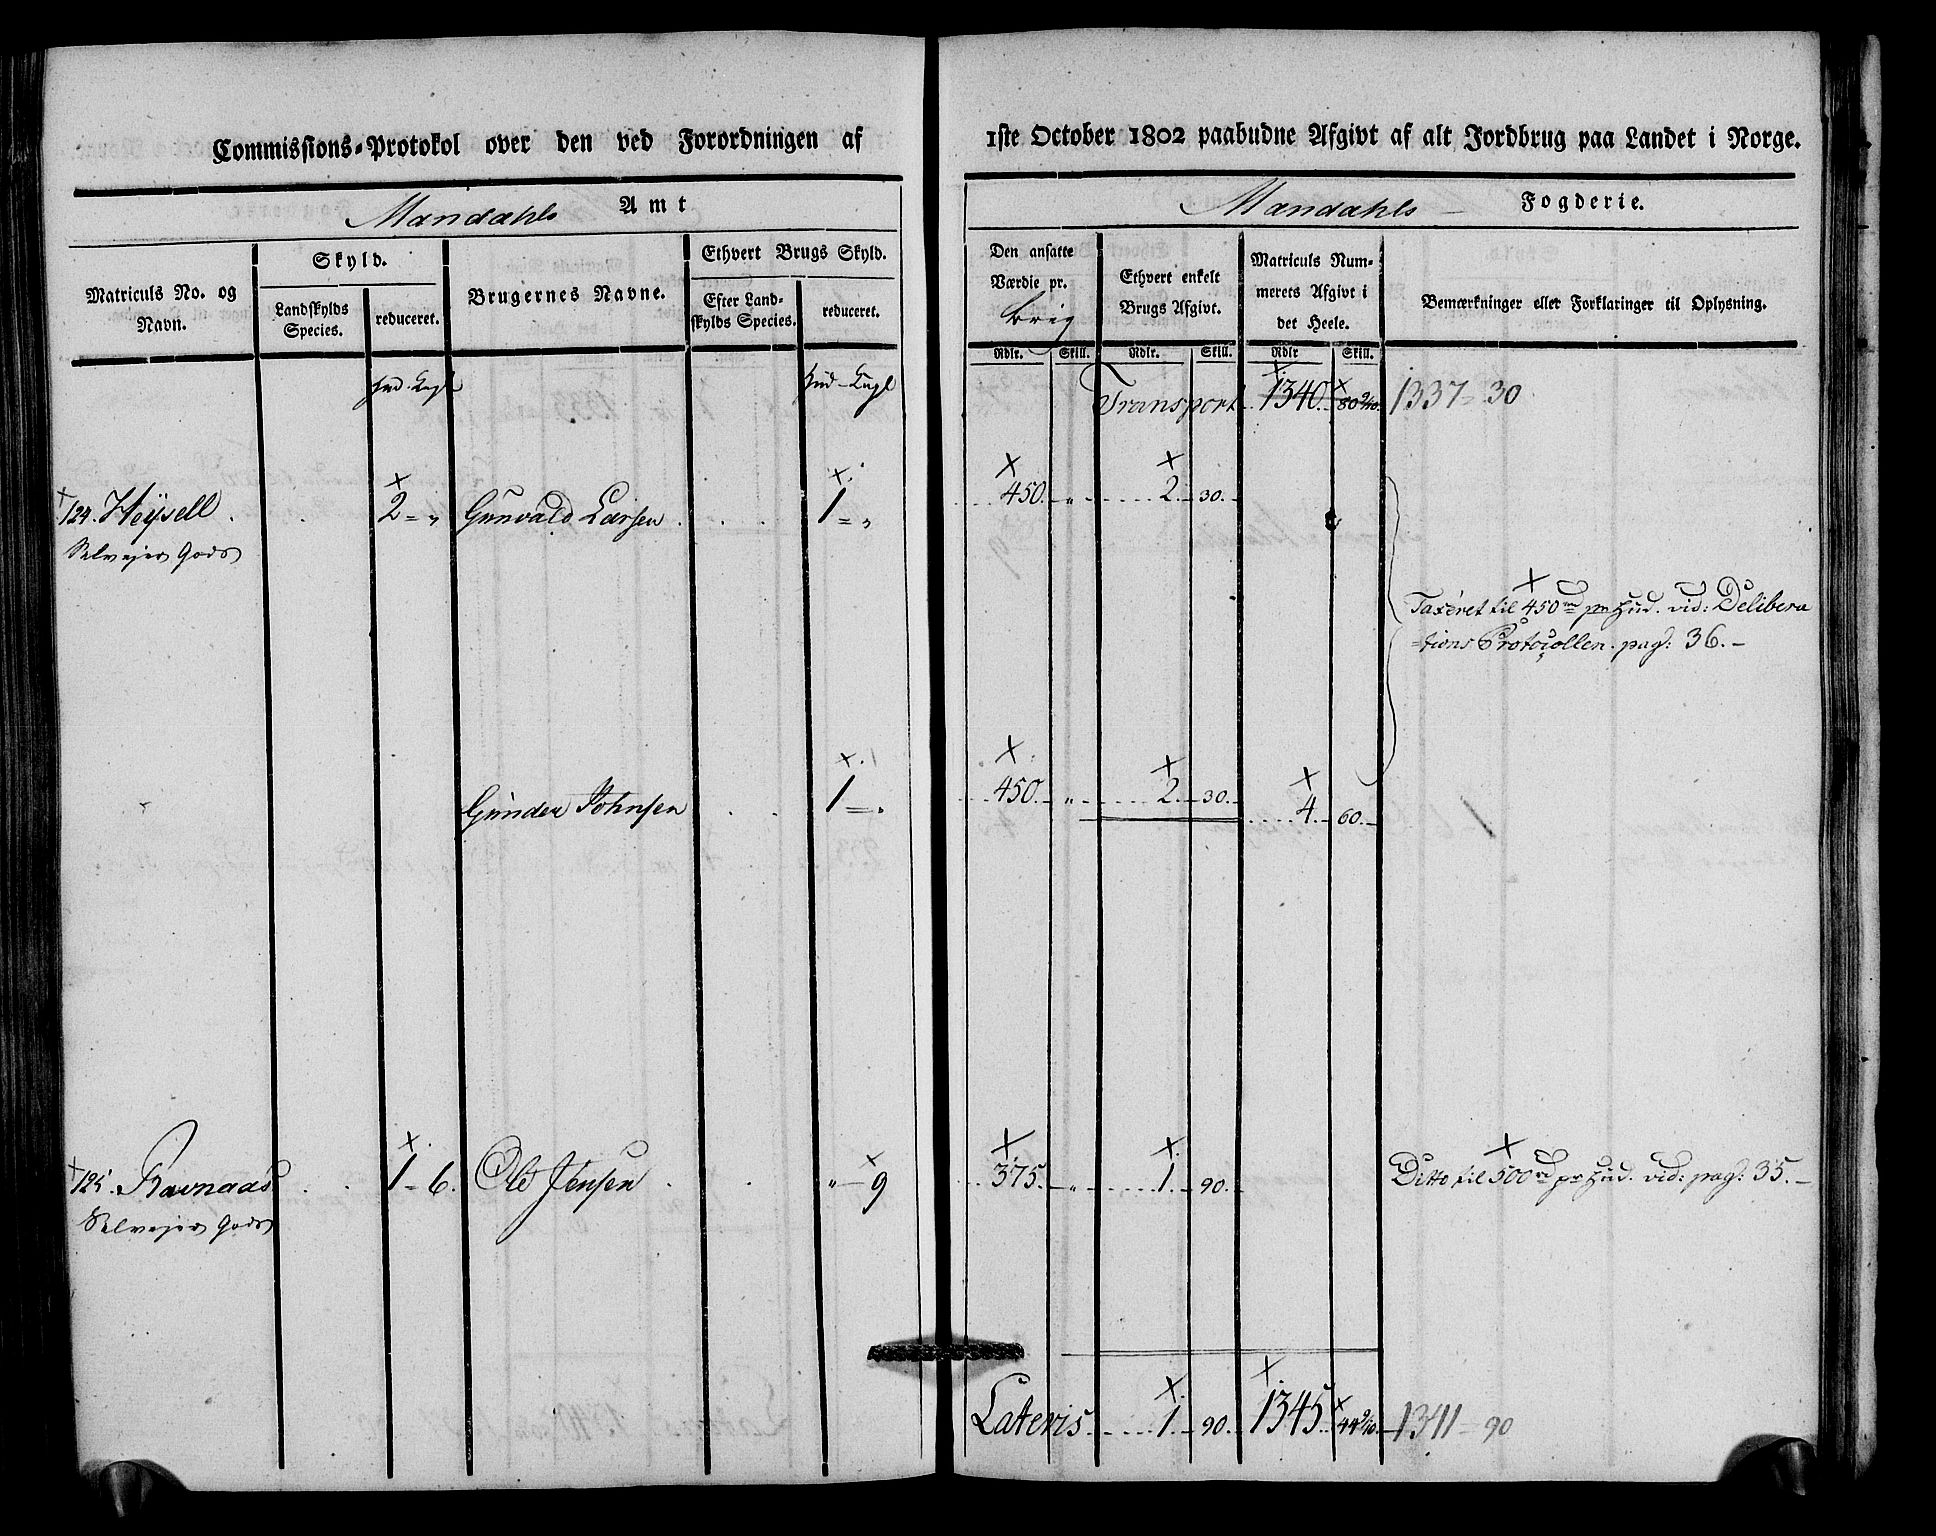 Commissions-Protokol over den ved Forordningen af 1ste October 1802 paabudne Afgivt af alt Jordbrug paa Landet i Norge.
Mandahls Amt Mandahls Fogderie.
Matriculs No. og Navn.
Skyld.
Landskylds Species.
reduceret.
Brugernes Navne.
Ethvert Brugs Skyld.
Efter Land-
skylds Species.
reduceret.
Den ansatte
Værdie pr.
Rdlr. Skill.
Ethvert enkelt
Brugs Afgivt.
Rdlr. Skill.
Matriculs Num-
merets Afgivt i
det Heele.
Rdlr Skill.
Bemærkninger eller Forklaringer til Oplysning.
Transport 1340. 1337 = 30
124. Heÿsell 2 = „ Gunvald Larsen 1 = „ 450. „ 2. 30.
Selvejer Gods
Taxeret til 450 rd pr Hud. vid: Delibera
=tions Protocollen. pag: 36.-
Gunder Johnsen 1 = „ 450. „ 2. 30. 4. 60.
125. Ravnaas 1 - 6. Ole Jensen „ - 9 375. „ 1. 90. Ditto til 500 rd pr Hud. vid: pag: 35.-
Selvejer Gods
Lateris 1. 90. 1345 1341 = 90